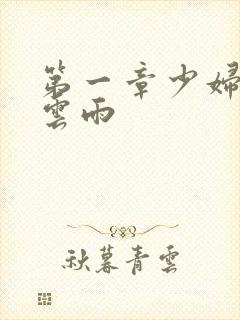 第一章少婦
雲雨
秋暮青雲